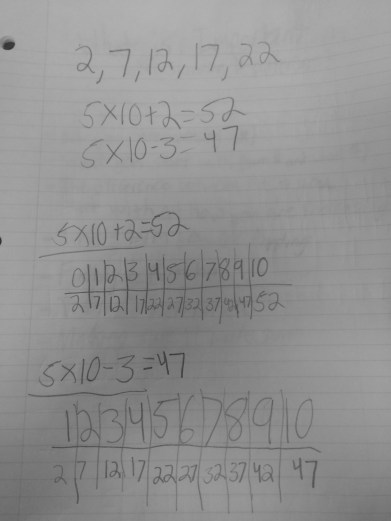 2, 7, 12, 17, 22
5×10+2=52
5×10-3=47
5×10+2=52
0 1 2 3 4 5 6 7 8 9 10
2 7 12 17 22 27 32 37 42 47 52
5×10-3=47
1 2 3 4 5 6 7 8 9 10
2 7 12 17 22 27 32 37 42 47